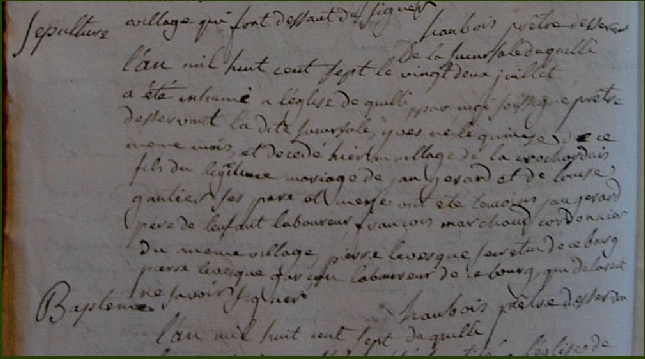 village qui font dessaut de signer
Sepulture
haubois prêtre desser
De la sucursale de quilli
l'an mil huit cent sept le vingt deux juillet
a été inhumé a l'église de quilli par moi soussigné prêtre
desservant la dite sucursale, yves né le quinze de ce
meme mois, et decedé hier au village de la crochardais
fils du légitime mariage de jan gerard et de louise
gautier ses pere et mere ont été temoins jan gerard
père de l'enfant laboureur françois marchand cordonnier
du meme village, pierre levesque de ce bourg
pierre levesque garçon laboureur de ce bourg, qui declarent
ne savoir signer
haubois prêtre desser
Bapteme
l'an mil huit cent sept de quilli
l'église de